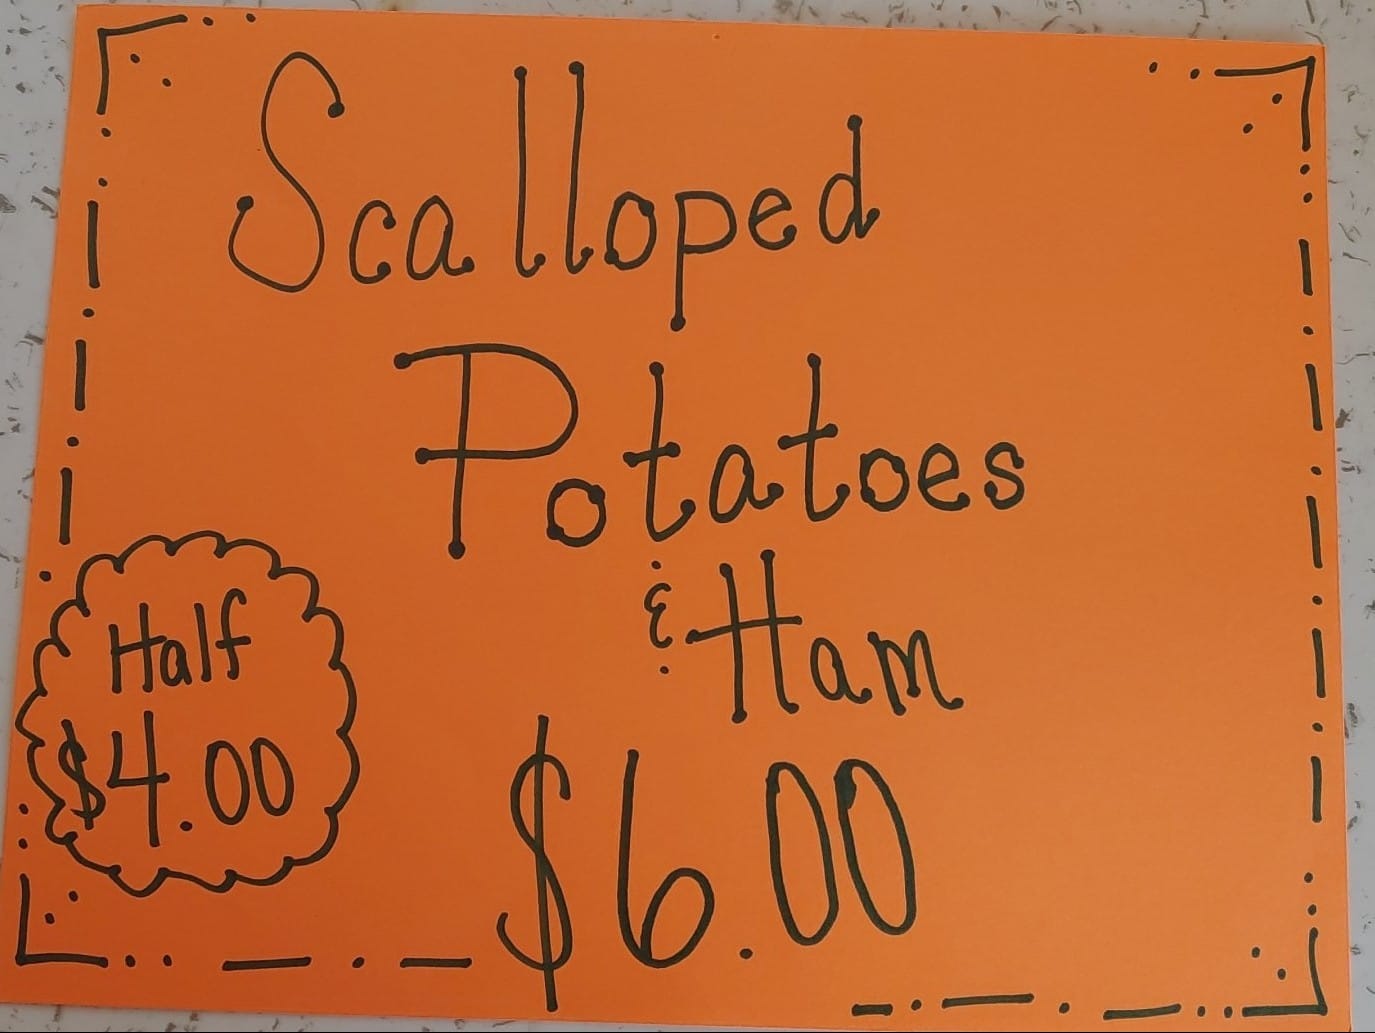 Scalloped
Potatoes
& Ham
$6.00
Half
$4.00